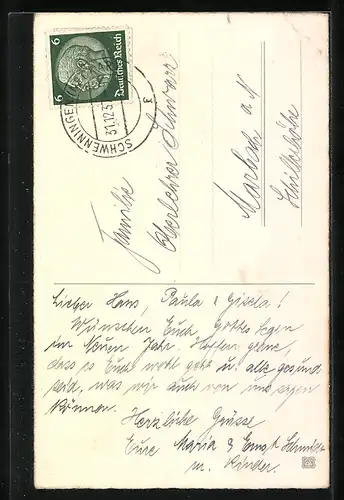 6 6
Deutsches Reich
SCHWENNINGEN
31.12.3
Familie
Oberlehrer Schwarz
Marbach a/N
Schillerhöhe
Lieber Hans, Paula & Gisela!
Wünschen Euch Gottes Segen
im Neuen Jahr. Hoffen gerne,
dass es Euch wohl geht u. alle gesund
seid, was wir auch von uns sagen
können.
Herzliche Grüsse
Eure Maria & Ernst Schmid
m. Kinder.